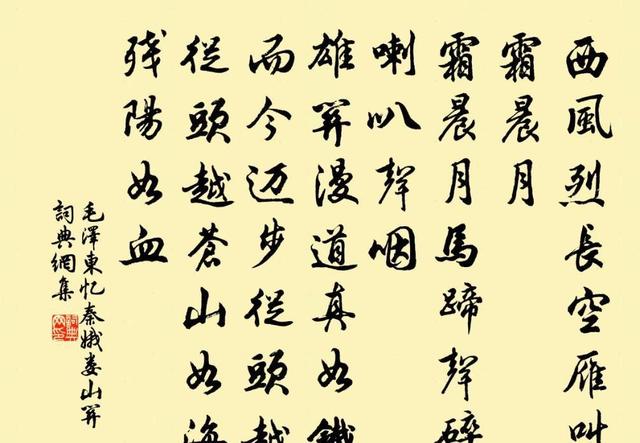 西風烈長空雁叫
霜晨月
霜晨月馬蹄聲碎
喇叭聲咽
雄關漫道真如鐵
而今迈步從頭越
從頭越蒼山如海
残陽如血
毛澤東忆秦娥娄山關
詞典網集